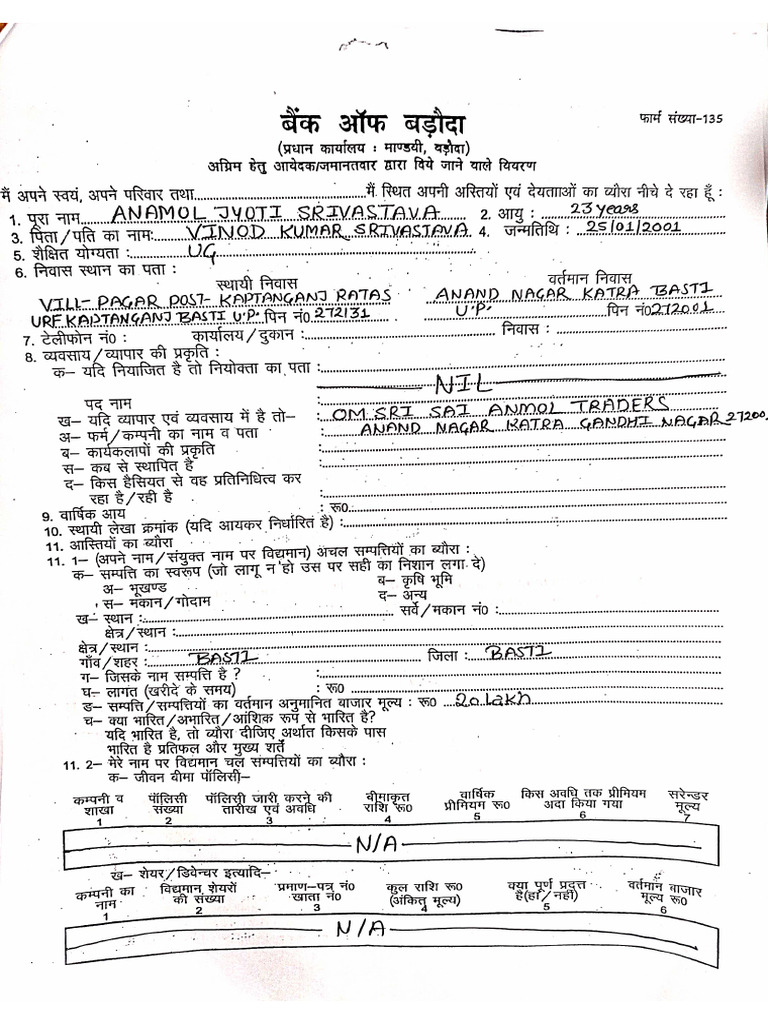 बैंक ऑफ बड़ौदा
फार्म संख्या-135
(प्रधान कार्यालय : माण्डवी, बड़ौदा)
अग्रिम हेतु आवेदक/जमानतदार द्वारा दिये जाने वाले विवरण
मैं अपने स्वयं, अपने परिवार तथा.....................में स्थित अपनी अस्तियों एवं देयताओं का ब्यौरा नीचे दे रहा हूँ :
1. पूरा नाम ANAMOL JYOTI SRIVASTAVA 2. आयु : 23 years
3. पिता/पति का नामः VINOD KUMAR SRIVASTAVA 4. जन्मतिथि : 25/01/2001
5. शैक्षित योग्यता : UG
6. निवास स्थान का पता :
स्थायी निवास वर्तमान निवास
VILL- PAGAR POST- KAPTANGANJ RATAS ANAND NAGAR KATRA BASTI
URF KAPTANGANJ BASTI U.P. पिन नं0 272131 U.P. पिन नं0 272001
7. टेलीफोन नं0 : कार्यालय/दुकान : निवास :
8. व्यवसाय/व्यापार की प्रकृति :
क– यदि नियाजित है तो नियोक्ता का पता :
NIL
पद नाम
ख– यदि व्यापार एवं व्यवसाय में है तो– : OM SRI SAI ANMOL TRADERS
अ– फर्म/कम्पनी का नाम व पता : ANAND NAGAR KATRA GANDHI NAGAR 27200
ब– कार्यकलापों की प्रकृति
स– कब से स्थापित है :
द– किस हैसियत से वह प्रतिनिधित्व कर
रहा है/रही है :
9. वार्षिक आय : रू0
10. स्थायी लेखा क्रमांक (यदि आयकर निर्धारित है) :
11. आस्तियों का ब्यौरा
11. 1– (अपने नाम/संयुक्त नाम पर विद्यमान) अचल सम्पत्तियों का ब्यौरा :
क– सम्पत्ति का स्वरूप (जो लागू न हो उस पर सही का निशान लगा दे)
अ– भूखण्ड ब– कृषि भूमि
स– मकान/गोदाम द– अन्य
ख– स्थान : सर्वे/मकान नं0 :
क्षेत्र/स्थान :
क्षेत्र/स्थान :
गाँव/शहर : BASTI जिला : BASTI
ग– जिसके नाम सम्पत्ति है ? :
घ– लागंत (खरीदे के समय) : रू0
ड– सम्पत्ति/सम्पत्तियों का वर्तमान अनुमानित बाजार मूल्य : रू0 20 lakh
च– क्या भारित/अभारित/आंशिक रूप से भारित है?
यदि भारित है, तो ब्यौरा दीजिए अर्थात किसके पास
भारित है प्रतिफल और मुख्य शर्ते
11. 2– मेरे नाम पर विद्यमान चल संम्पत्तियों का ब्यौरा :
क– जीवन वीमा पॉलिसी–
कम्पनी व पॉलिसी पॉलिसी जारी करने की बीमाकृत वार्षिक किस अवधि तक प्रीमियम सरेन्डर
शाखा संख्या तारीख एवं अवधि राशि रू0 प्रीमियम रू0 अदा किया गया मूल्य
1 2 3 4 5 6 7
N/A
ख– शेयर/डिवेन्चर इत्यादि–
कम्पनी का विद्यमान शेयरों प्रमाण–पत्र नं0 कुल राशि रू0 क्या पूर्ण प्रदत्त वर्तमान बाजार
नाम की संख्या खाता नं0 (अंकित मूल्य) है(हां/नहीं) मूल्य रू0
1 2 3 4 5 6
N/A